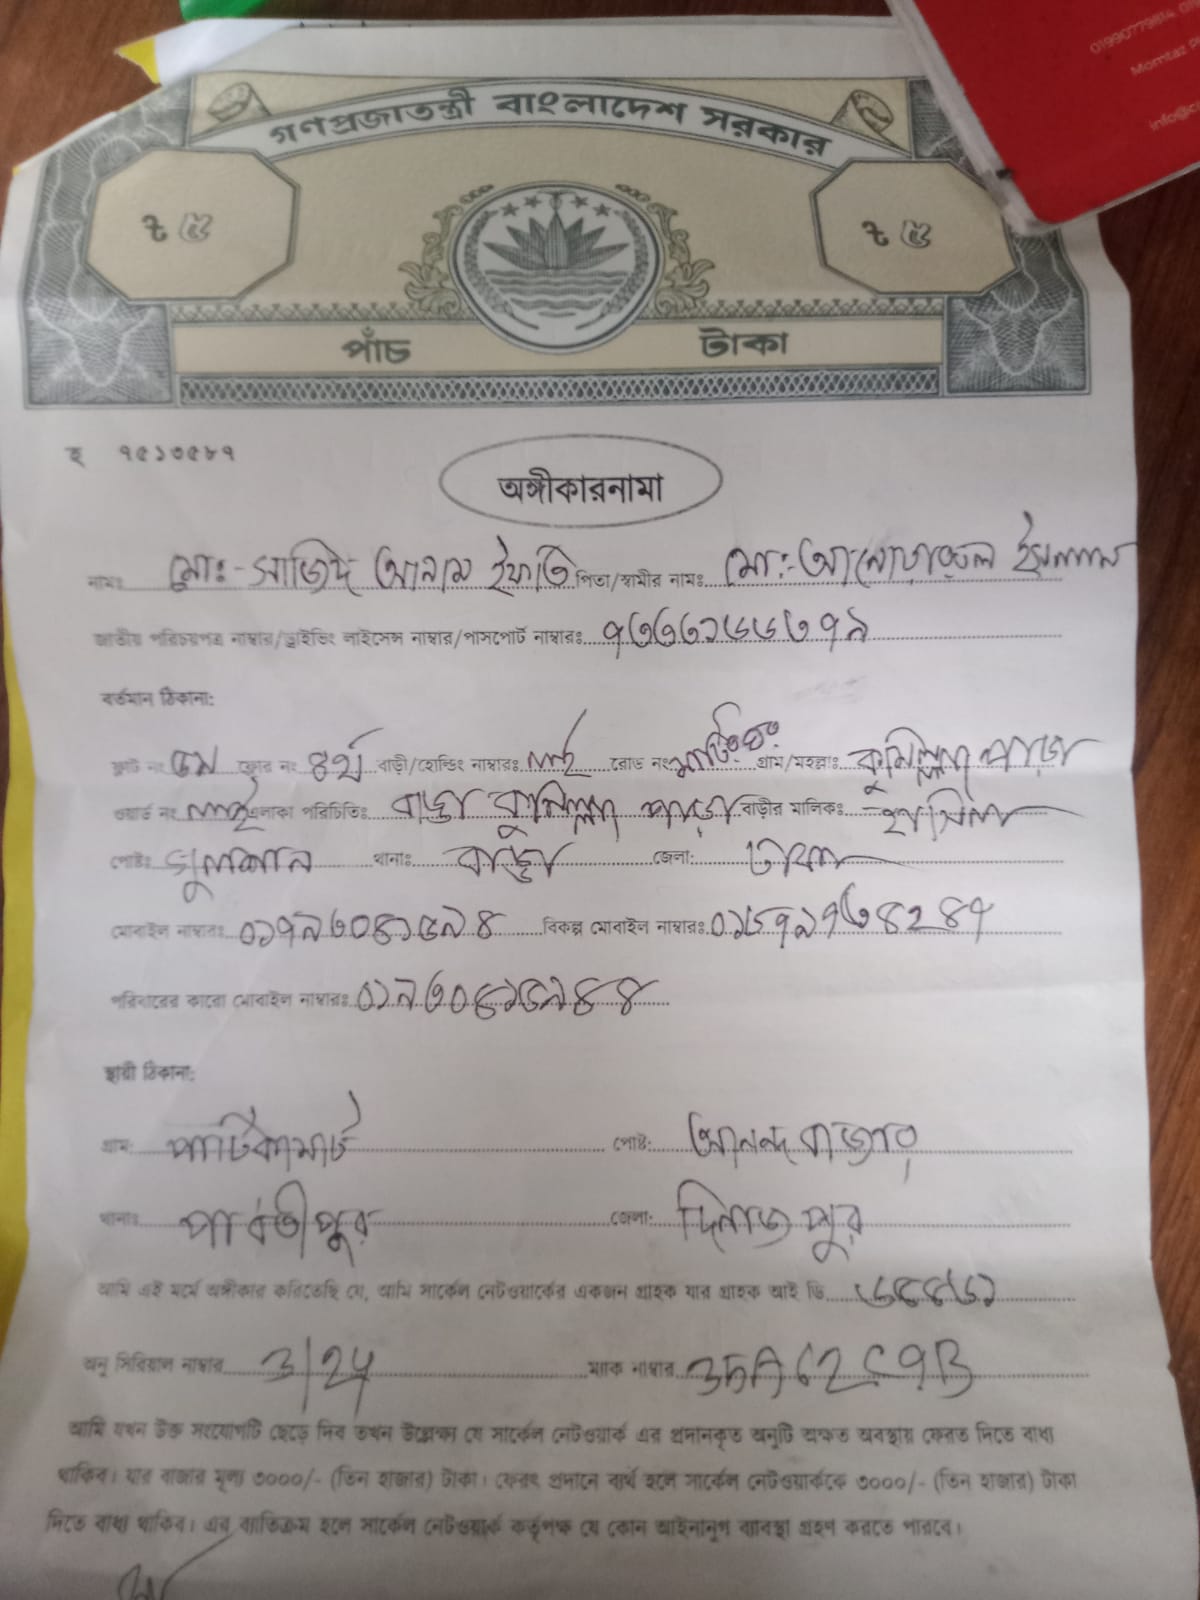 01990779814
Momtaz
info@c
গণপ্রজাতন্ত্রী বাংলাদেশ সরকার
৳ ৫ ৳ ৫
পাঁচ টাকা
হ ৭৫১৩৫৮৭
অঙ্গীকারনামা
নামঃ মোঃ-সাজিদ আনাম ইফাতি পিতা/স্বামীর নামঃ মোঃ-আনোয়ারুল ইসলাম
জাতীয় পরিচয়পত্র নাম্বার/ড্রাইভিং লাইসেন্স নাম্বার/পাসপোর্ট নাম্বারঃ ৭৩৩৩১৬৬৩৭৯
বর্তমান ঠিকানা:
ফ্লাট নং ফ্লোর নং ৪র্থ বাড়ী/হোল্ডিং নাম্বারঃ নাই রোড নং গ্রাম/মহল্লাঃ কুমিল্লা পাড়া
ওয়ার্ড নং নাই এলাকা পরিচিতিঃ বাড্ডা কুমিল্লা পাড়া বাড়ীর মালিকঃ হাসিনা
পোষ্টঃ গুলশান থানাঃ বাড্ডা জেলা: ঢাকা
মোবাইল নাম্বারঃ বিকল্প মোবাইল নাম্বারঃ
পরিবারের কারো মোবাইল নাম্বারঃ
স্থায়ী ঠিকানা:
গ্রাম: পোষ্ট: আনন্দ বাজার
থানাঃ পার্বতীপুর জেলা: দিনাজপুর
আমি এই মর্মে অঙ্গীকার করিতেছি যে, আমি সার্কেল নেটওয়ার্কের একজন গ্রাহক যার গ্রাহক আই ডি
অনু সিরিয়াল নাম্বার ম্যাক নাম্বার
আমি যখন উক্ত সংযোগটি ছেড়ে দিব তখন উল্লেক্ষ্য যে সার্কেল নেটওয়ার্ক এর প্রদানকৃত অনুটি অক্ষত অবস্থায় ফেরত দিতে বাধ্য
থাকিব। যার বাজার মূল্য ৩০০০/- (তিন হাজার) টাকা। ফেরৎ প্রদানে ব্যর্থ হলে সার্কেল নেটওয়ার্ককে ৩০০০/- (তিন হাজার) টাকা
দিতে বাধ্য থাকিব। এর ব্যতিক্রম হলে সার্কেল নেটওয়ার্ক কর্তৃপক্ষ যে কোন আইনানুগ ব্যাবস্থা গ্রহণ করতে পারবে।